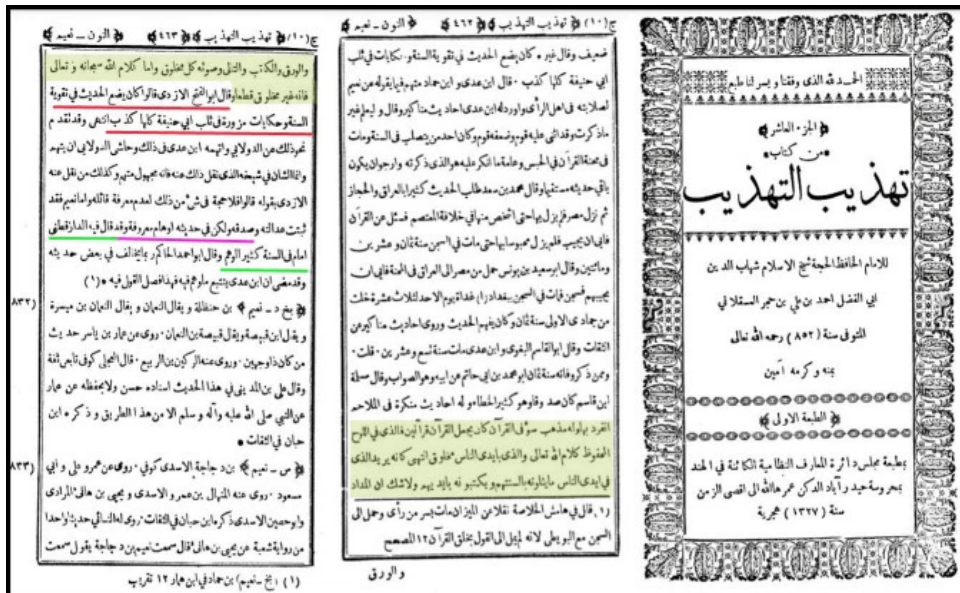 الحمد لله الذى وفقنا ويسر لنا طبع
﴿ الجزء العاشر ﴾
من كتاب
تهذيب التهذيب
للامام الحافظ الحجة شيخ الاسلام شهاب الدين
ابي الفضل احمد بن علي بن حجر العسقلاني
المتوفى سنة (٨٥٢) رحمه الله تعالى
بمنه وكرمه آمين
﴿ الطبعة الاولى ﴾
بمطبعة مجلس دائرة المعارف النظامية الكائنة في الهند
بمحروسة حيدر آباد الدكن عمرها الله الى اقصى الزمن
سنة (١٣٢٧) هجرية
ج (١٠) ﴿ تهذيب التهذيب ﴾ ﴿ ٤٦٢ ﴾ ﴿ النون - نعيم ﴾
ضعيف وقال غيره كان يضع الحديث في تقوية السنة وحكايات في ثلب
ابي حنيفة كلها كذب * قال ابن عدى وابن حماد متهم فيما يقوله عن نعيم
لصلابته في اهل الرأى واورد له ابن عدى احاديث مناكير وقال وليعم غير
ما ذكرت وقد اثنى عليه قوم وضعفه قوم وكان احد من يتصلب في السنة ومات
في محنة القرآن في الحبس وعامة ما انكر عليه هو الذى ذكرته وارجو ان يكون
باقي حديثه مستقيما وقال محمد بن سعد طلب الحديث كثيرا بالعراق والحجاز
ثم نزل مصر فلم يزل بها حتى اشخص منها في خلافة المعتصم فسئل عن القرآن
فابى ان يجيب فلم يزل محبوسا بها حتى مات في السجن سنة ثمان وعشرين
ومائتين وقال ابو سعيد بن يونس حمل من مصر الى العراق في المحنة فابى ان
يجيبهم فسجن فمات في السجن ببغداد غداة يوم الاحد لثلاث عشرة خلت
من جمادى الاولى سنة ثمان وكان يفهم الحديث وروى احاديث مناكير عن
الثقات وقال ابو القاسم البغوى وابن عدى مات سنة تسع وعشرين * قلت *
وممن ذكر وفاته سنة ثمان ابو محمد بن ابي حاتم عن ابيه وهو الصواب وقال مسلمة
ابن قاسم كان صدوقا وهو كثير الخطاء وله احاديث منكرة في الملاحم
انفرد بها وله مذهب سوء في القرآن كان يجعل القرآن قرآنين فالذى في اللوح
المحفوظ كلام الله تعالى والذى بايدى الناس مخلوق انتهى كانه يريد الذى
في ايدى الناس ما يتلونه بالسنتهم ويكتبونه بايديهم ولا شك ان المداد
(١) قال في هامش الخلاصة نقلا عن الميزان مات بسر من رأى وحمل الى
السجن مع البويطى لانه لم يمل الى القول بخلق القرآن ١٢ المصحح
والورق
ج (١٠) ﴿ تهذيب التهذيب ﴾ ﴿ ٤٦٣ ﴾ ﴿ النون - نعيم ﴾
والورق والكاتب والتالى وصوته كل مخلوق واما كلام الله سبحانه وتعالى
فانه غير مخلوق قطعا وقال ابو الفتح الازدى قالوا كان يضع الحديث في تقوية
السنة وحكايات مزورة في ثلب ابي حنيفة كلها كذب انتهى وقد تقدم
نحو ذلك عن الدولابي واتهمه ابن عدى في ذلك وحاشى الدولابي ان يتهم
وانما الشان في شيخه الذى نقل ذلك عنه فانه مجهول متهم وكذلك من نقل عنه
الازدى بقوله قالوا فلا حجة في شئ من ذلك لعدم معرفة قائله واما نعيم فقد
ثبتت عدالته وصدقه ولكن في حديثه اوهام معروفة وقد قال فيه الدارقطني
امام في السنة كثير الوهم وقال ابو احمد الحاكم ربما يخالف في بعض حديثه
وقد مضى ان ابن عدى يتتبع ما وهم فيه فهذا فصل القول فيه * (١)
(٨٣٢) ﴿ بخ د - نعيم ﴾ بن حنظلة ويقال النعمان ويقال النعمان بن ميسرة
ويقال ابن قبيصة ويقال قبيصة بن النعمان * روى عن عمار بن ياسر حديث
من كان ذا وجهين * وروى عنه الركين بن الربيع * قال العجلي كوفي تابعي ثقة
وقال علي بن المديني في هذا الحديث اسناده حسن ولا يحفظه عن عمار
عن النبي صلى الله عليه وآله وسلم الا من هذا الطريق وذكره ابن
حبان في الثقات *
(٨٣٣) ﴿ س - نعيم ﴾ بن دجاجة الاسدى كوفي * روى عن عمر وعلي وابي
مسعود * روى عنه المنهال بن عمرو الاسدى ويحيى بن هانئ المرادى
وابو حصين الاسدى ذكره ابن حبان في الثقات * روى له النسائى حديثا واحدا
من رواية شعبة عن يحيى بن هانئ قال سمعت نعيم بن دجاجة يقول سمعت
(١) (بخ - نعيم) بن حماد في ابن همار ١٢ تقريب